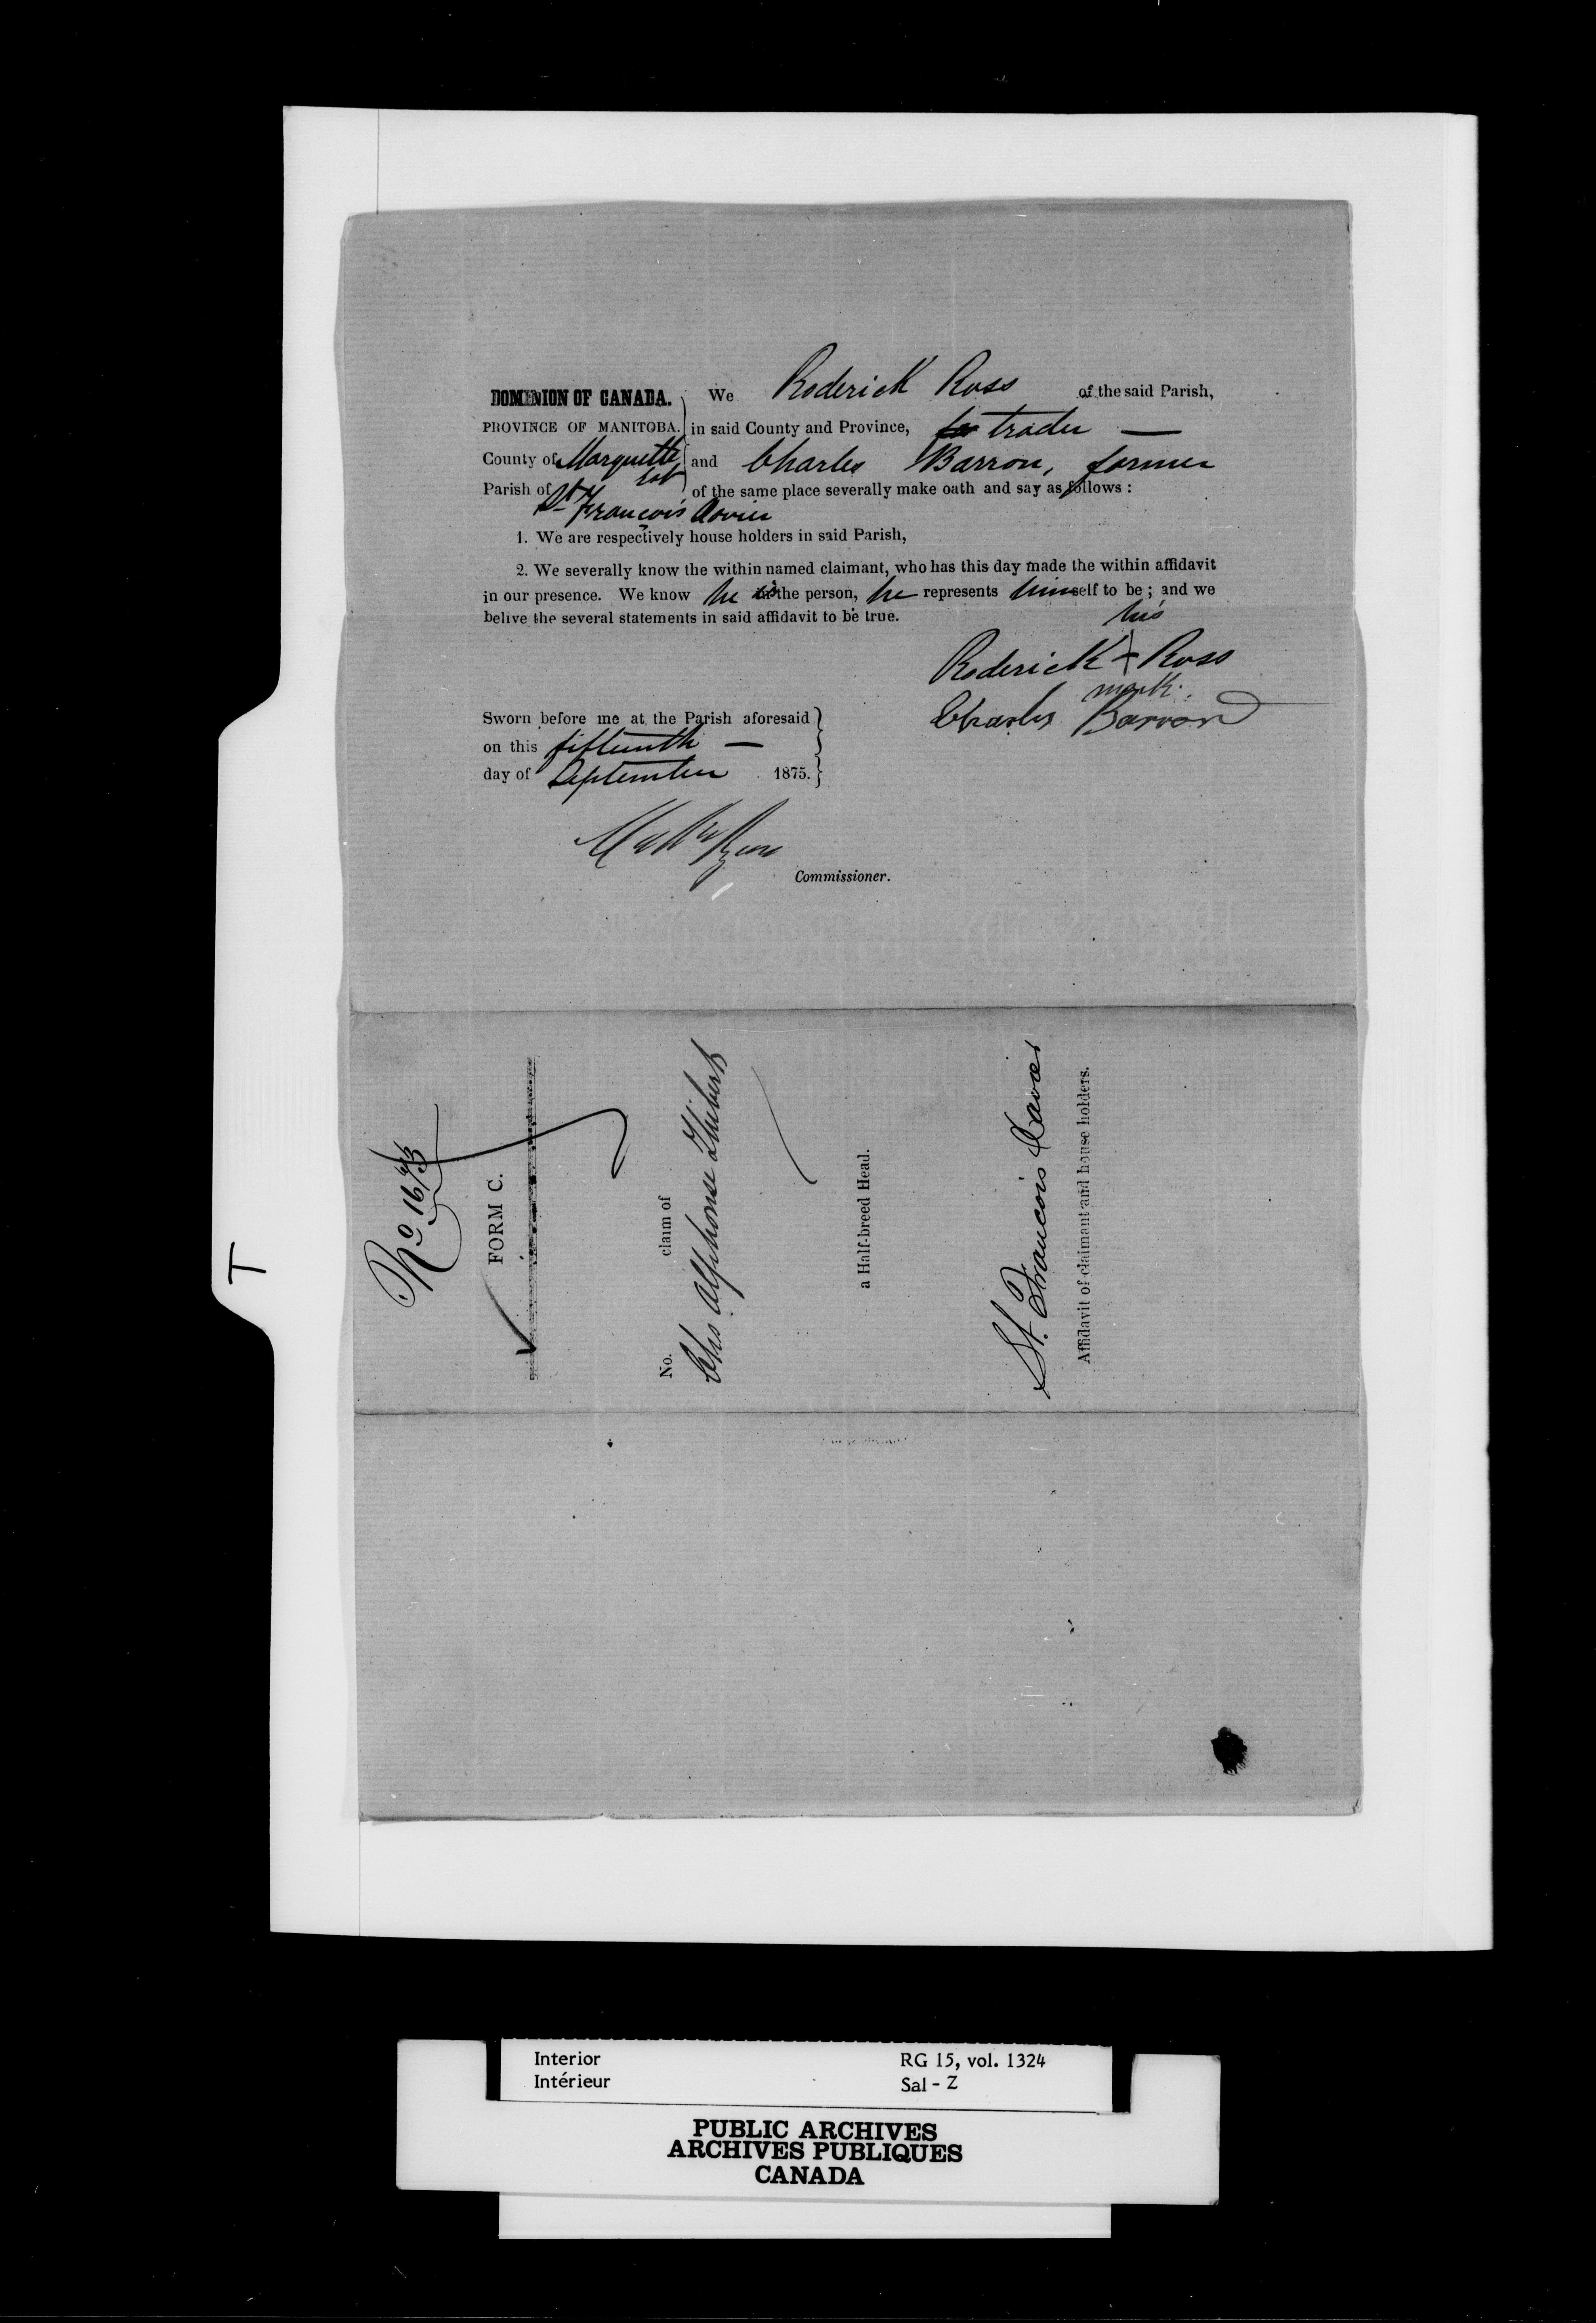 DOMINION OF CANADA.
PROVINCE OF MANITOBA.
County of Marquette
Parish of St François Xavier
We Roderick Ross of the said Parish,
in said County and Province, trader —
and Charles Barron, farmer
of the same place severally make oath and say as follows :
1. We are respectively house holders in said Parish,
2. We severally know the within named claimant, who has this day made the within affidavit
in our presence. We know he is the person, he represents himself to be ; and we
belive the several statements in said affidavit to be true.
his
Roderick + Ross
mark.
Charles Barron
Sworn before me at the Parish aforesaid
on this fifteenth —
day of September 1875.
Commissioner.
No 16
FORM C.
No. claim of
Chs Alphonse Thibert
a Half-breed Head.
St. Francois Xavier
Affidavit of claimant and house holders.
T
Interior
Intérieur
RG 15, vol. 1324
Sal - Z
PUBLIC ARCHIVES
ARCHIVES PUBLIQUES
CANADA